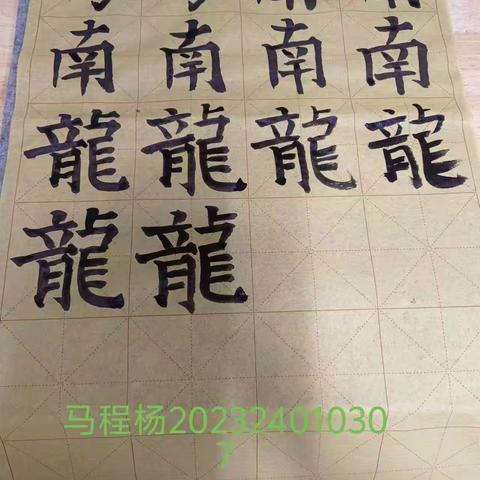 南南南南
龍龍龍龍
龍龍
马程杨20232401030
7